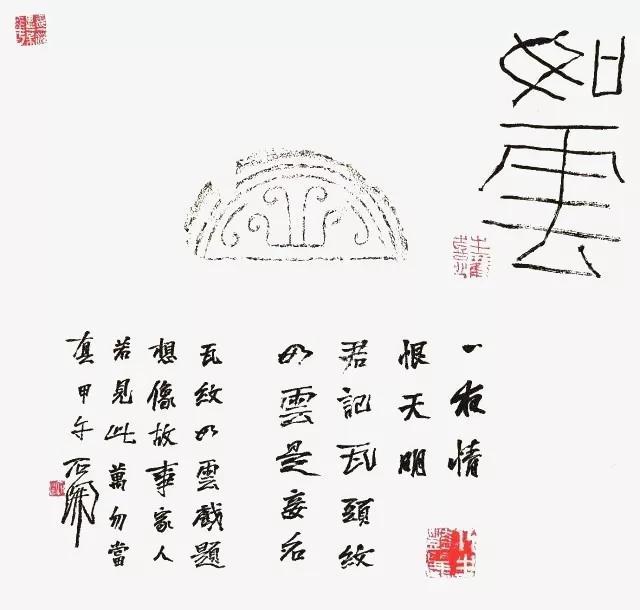 如雲
一夜情
恨天明
君記瓦頭紋
如雲是妾名
瓦紋如雲戲題
想像故事家人
若見此萬勿當
真甲午石開